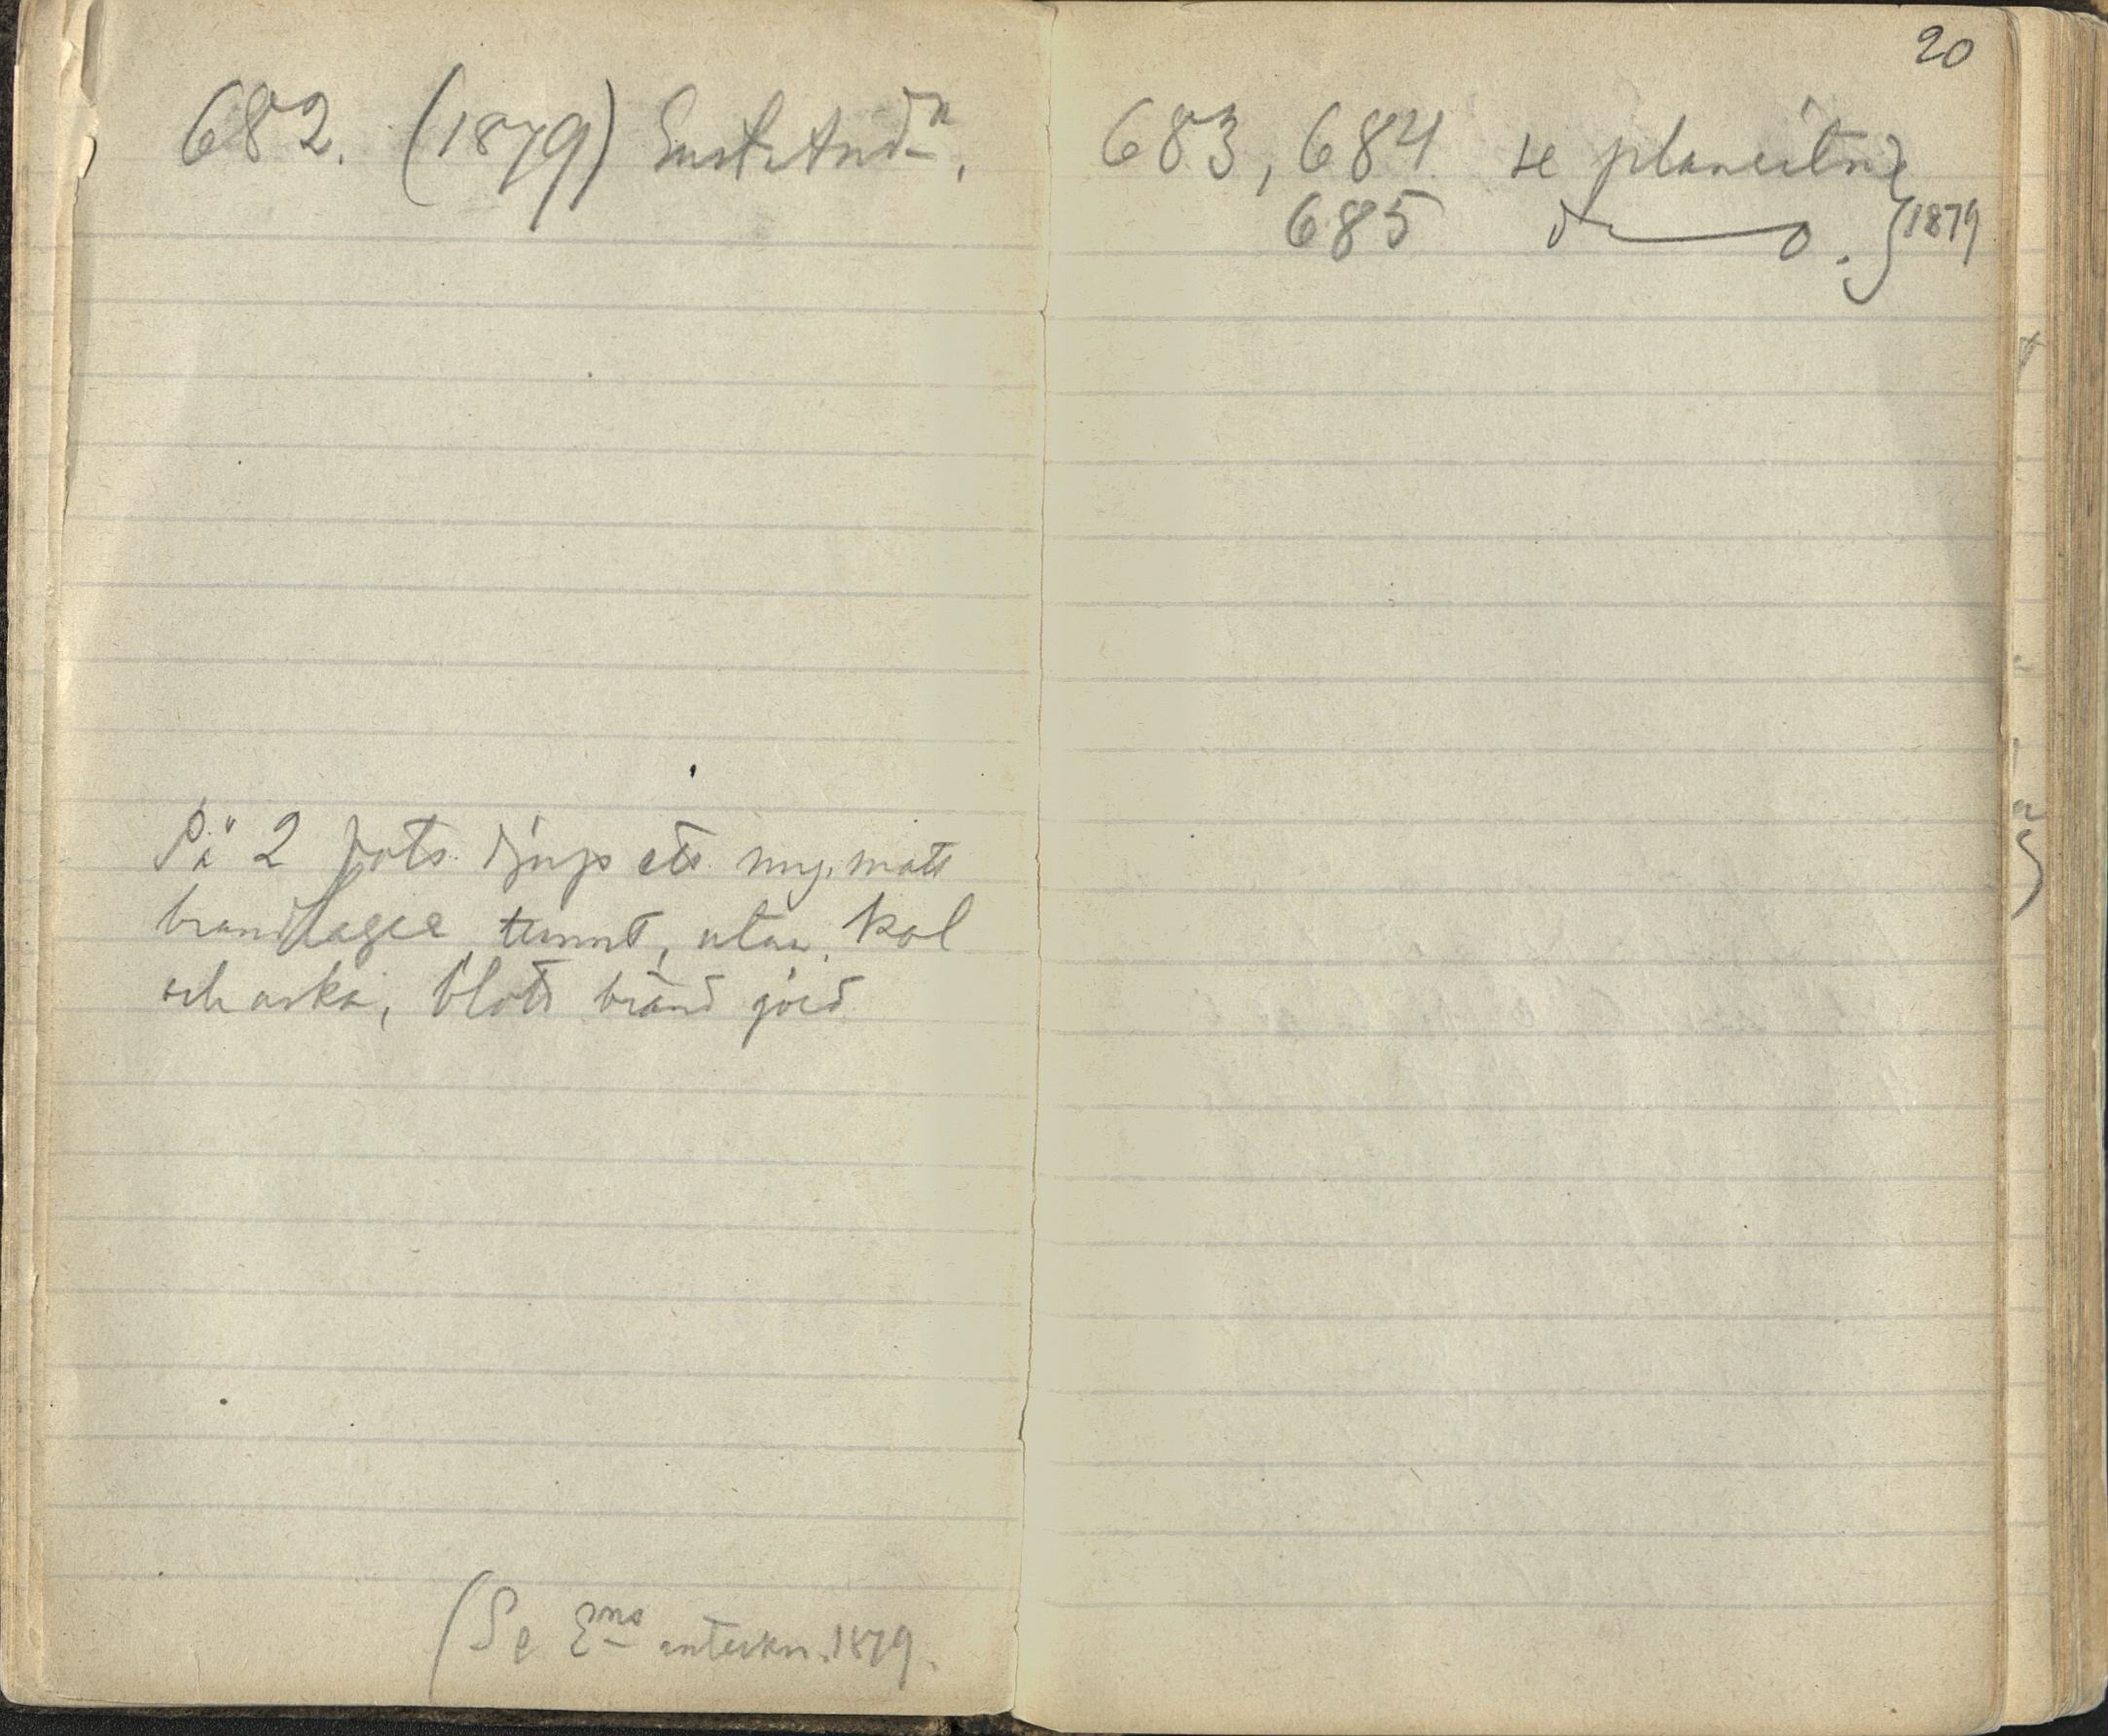 682. (1879)
På 2 fots djup ett myc. matt
brandlager, tunnt, utan kol
och aska, blott bränd jord
(Se E<sup>ns</sup> anteckn. 1879.
20
683, 684 se planritn
685 d—o. } 1879